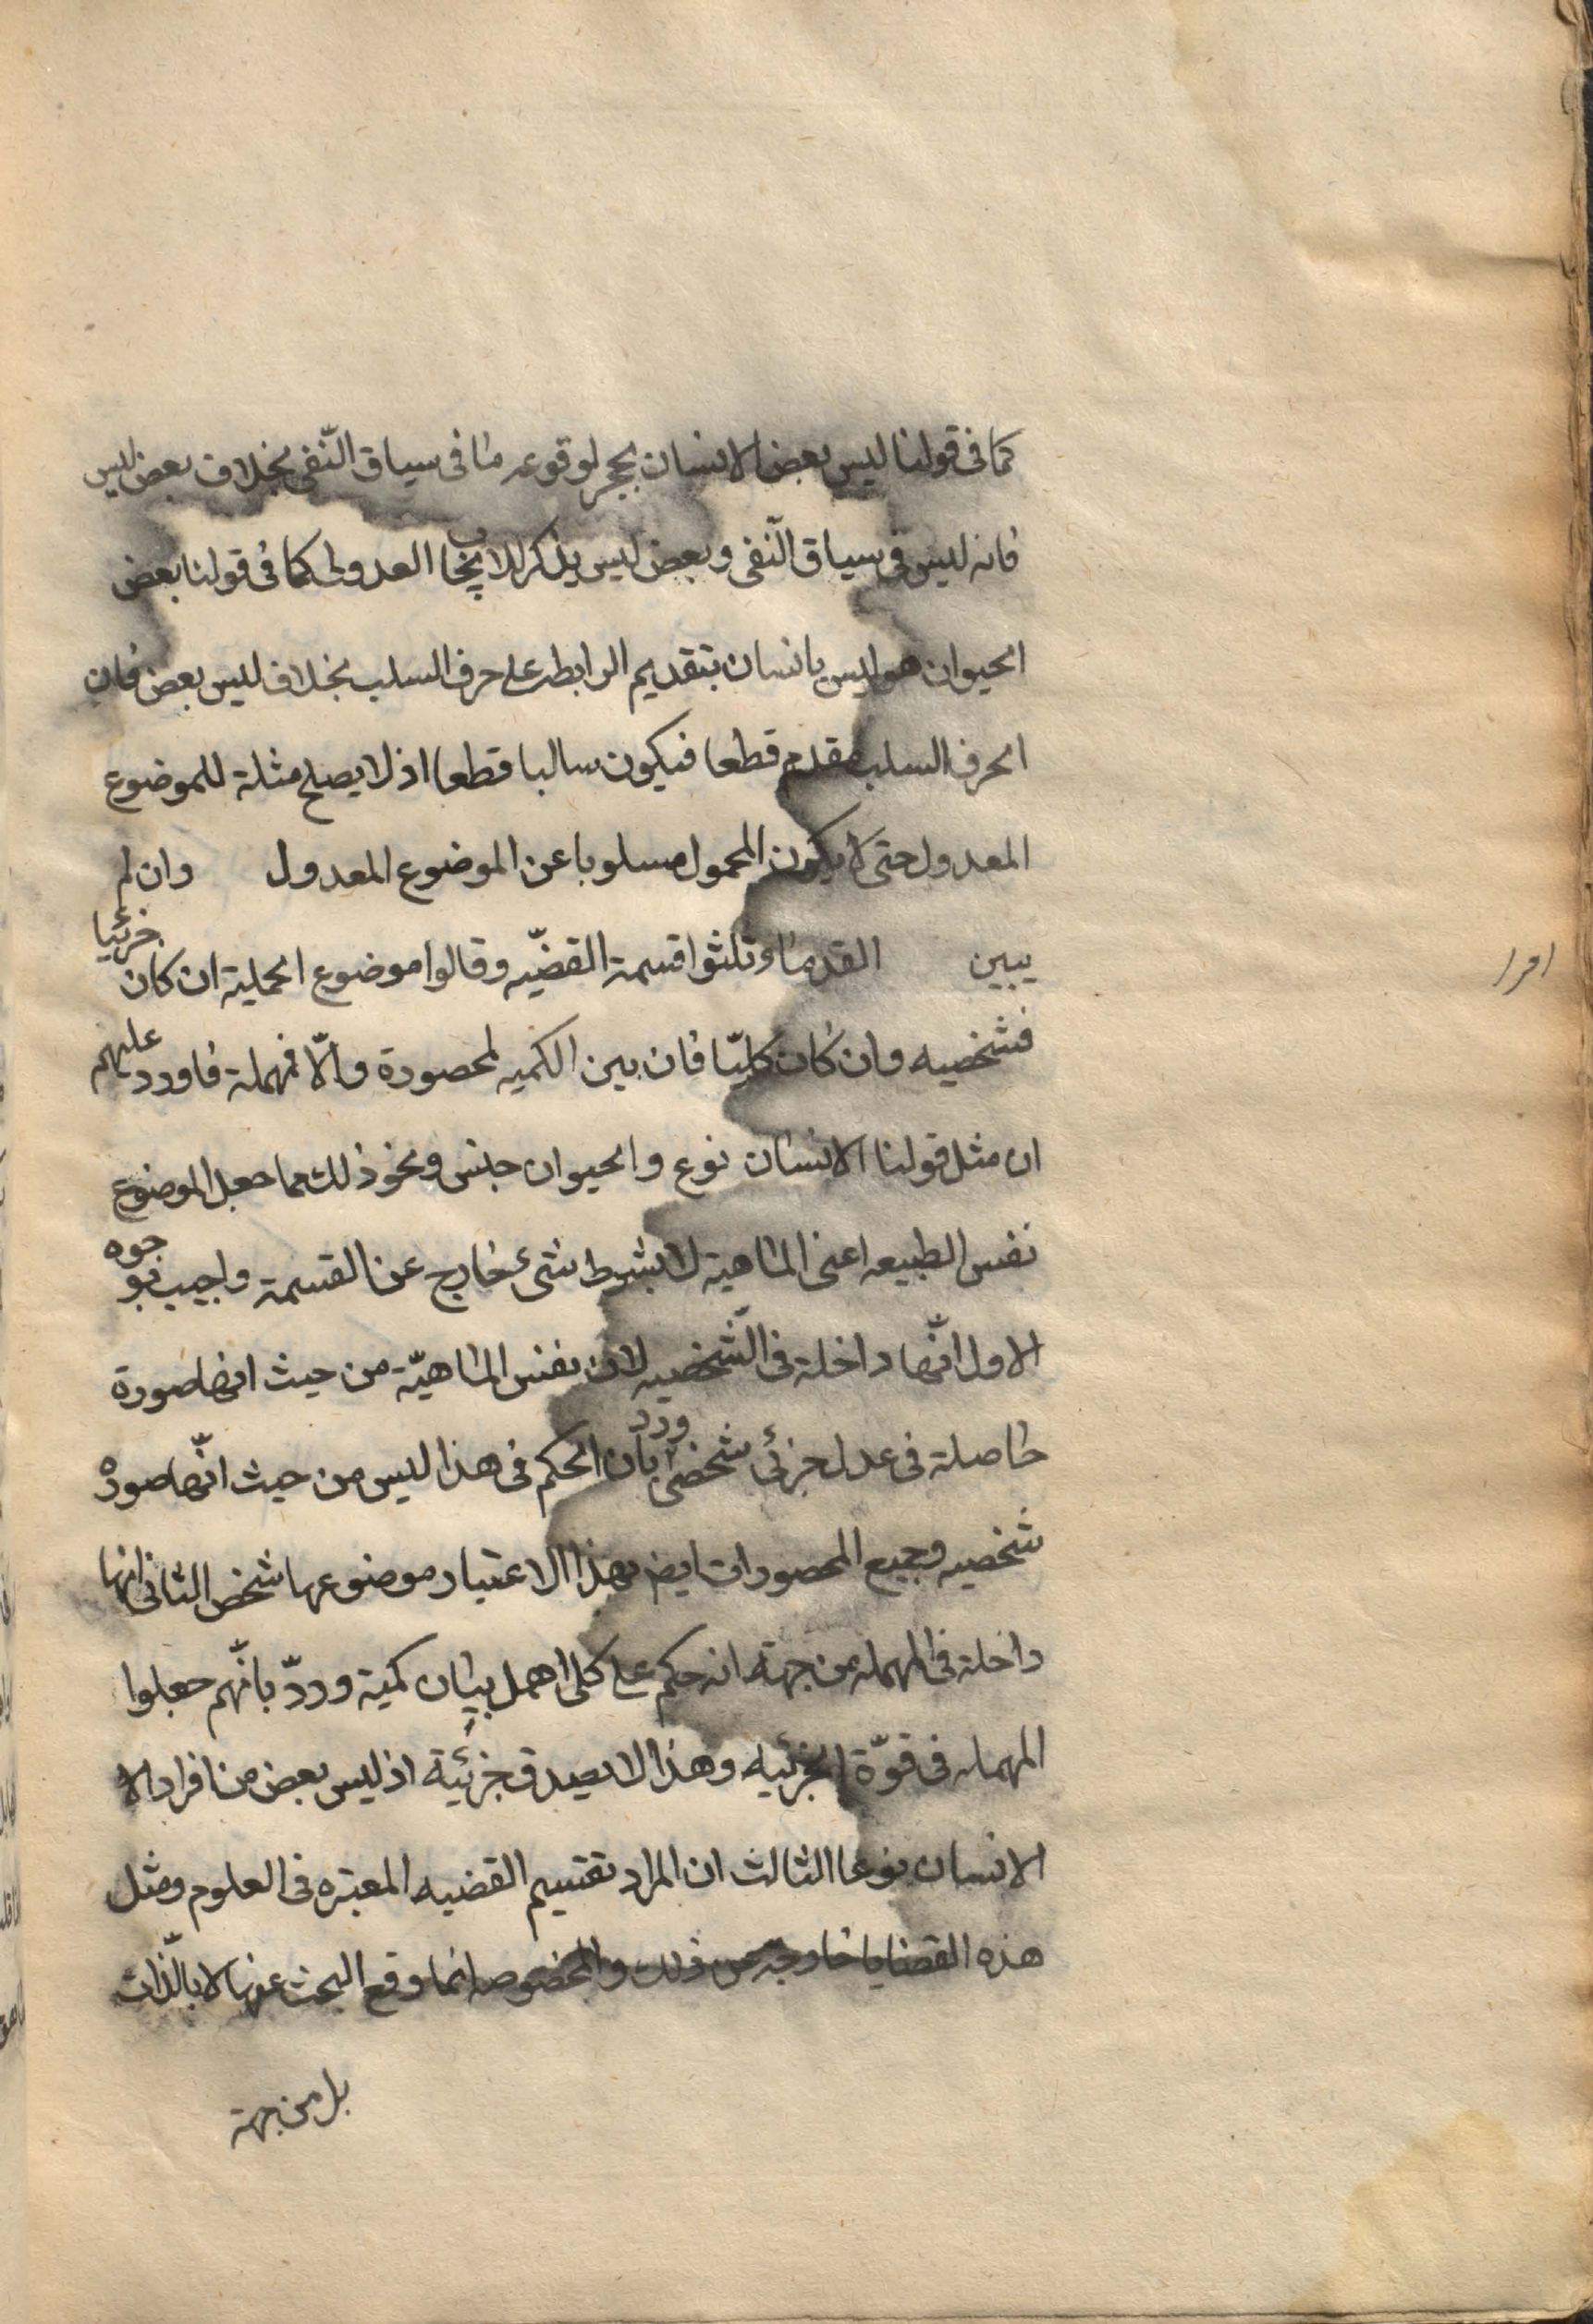 كما فى قولنا ليس بعض الانسان بحجر لوقوعه ما فى سياق النّفى بخلاف بعض ليس
فانه ليس فى سياق النّفى وبعض ليس يذكر للايجاب العدولى كما فى قولنا بعض
الحيوان هو ليس بانسان بتقديم الرابطة على حرف السلب بخلاف ليس بعض فان
الحرف السلب مقدم قطعا فيكون سالبا قطعا اذ لا يصلح مثلة للموضوع
المعدول حتى لا يكون المحمول مسلوبا عن الموضوع المعدول وان لم
يبين القدما وثلثوا قسمة القضيّه وقالوا موضوع الحملية ان كان جزئيا
فشخصيه وان كان كليّا فان بين الكميه لمحصورة والّا فمهملة فاورد عليهم
ان مثل قولنا الانسان نوع والحيوان جنس ونحو ذلك مما جعل الموضوع
نفس الطبيعه اعنى الماهية لا بشرط شئ خارج عن القسمة واجيب بوجوه
الاول انّها داخلة فى الشّخصيه لان نفس الماهيّة من حيث انها صورة
حاصلة فى عدل جزئى شخصى ورد بان الحكم فى هذا ليس من حيث انّها صورة
شخصيه وجميع المحصورات ايض بهذا الاعتبار موضوعها شخص الثانى انها
داخلة فى المهمله من جهة انه حكم على كلى اهمل بيان كمية وردّ بانّهم جعلوا
المهمله فى قوّة الجزئيه وهذا لا يصدق جزئية اذ ليس بعض من افراد الا
الانسان نوعا الثالث ان المراد تقسيم القضيه المعتبره فى العلوم ومثل
هذه القضايا خارجة عن ذلك والمخصوصه انما وقع البحث عنها لا بالذّات
بل من جهة